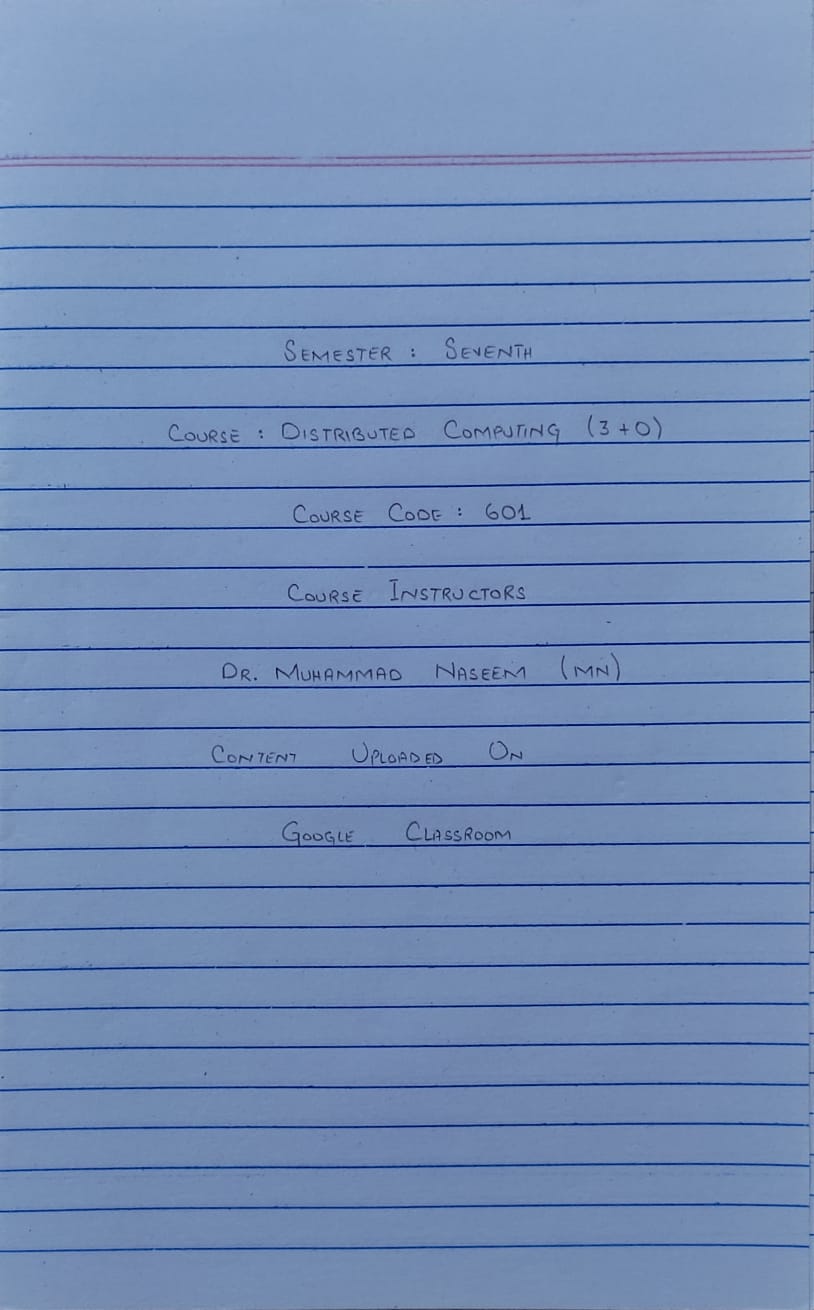 SEMESTER : SEVENTH
COURSE : DISTRIBUTED COMPUTING (3+0)
COURSE CODE : 601
COURSE INSTRUCTORS
DR. MUHAMMAD NASEEM (MN)
CONTENT UPLOADED ON
GOOGLE CLASSROOM